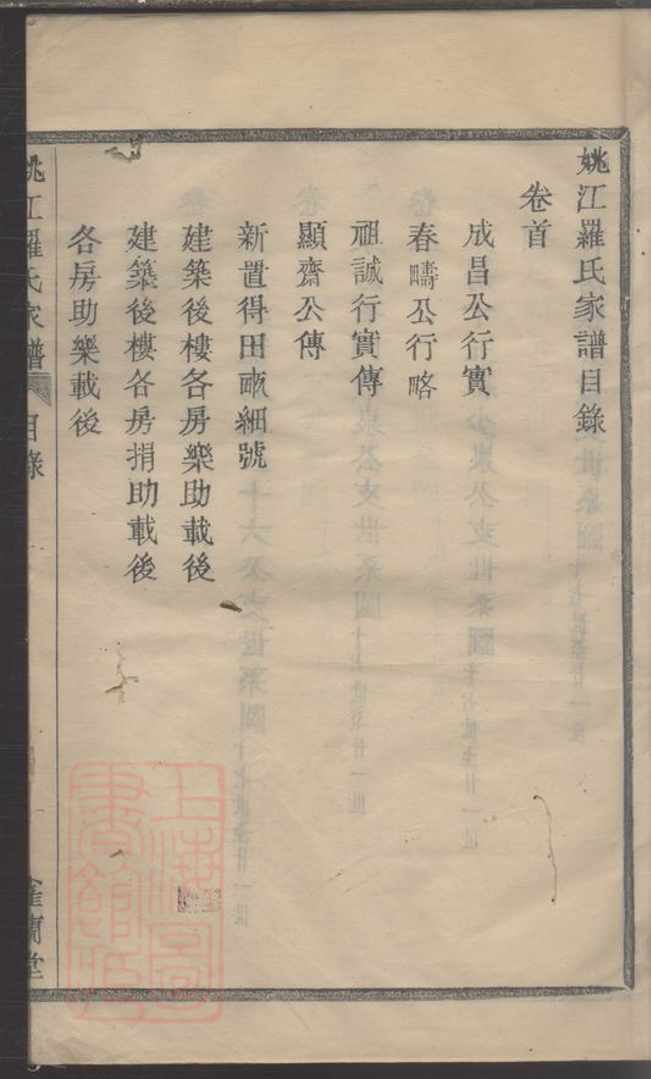 姚江羅氏家譜目錄
卷首
成昌公行實
春疇公行略
祖誠行實傳
顯齋公傳
新置得田畝細號
建築後樓各房樂助載後
建築後樓各房捐助載後
各房助樂載後
姚江羅氏家譜 目錄 一
蘭堂
上海圖書館藏